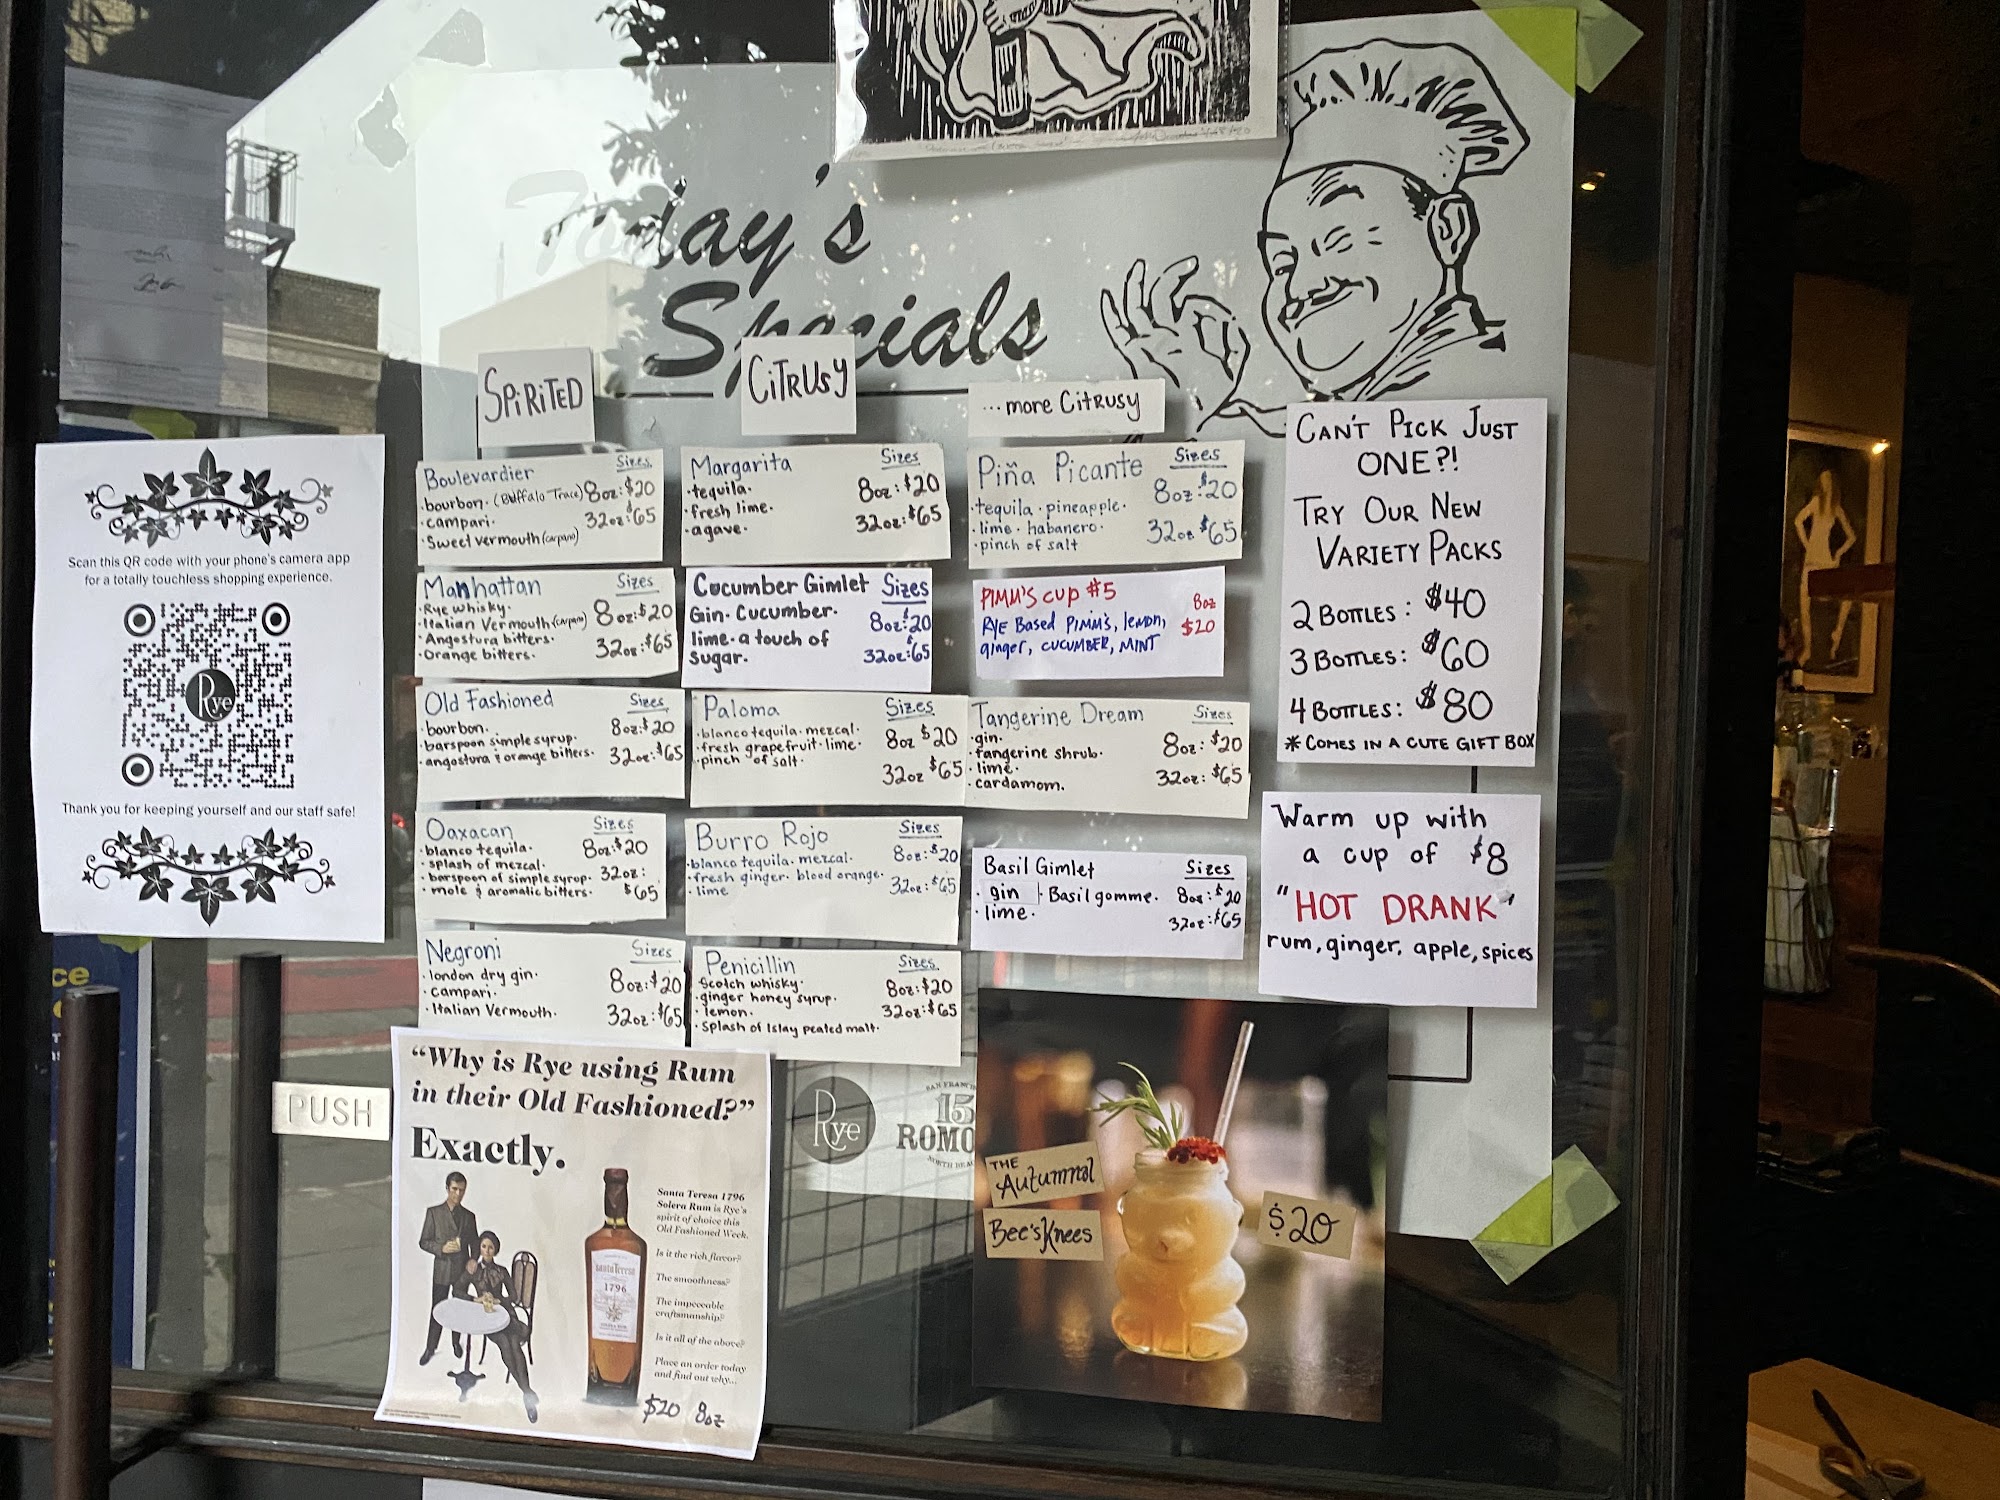 Today's
Specials
SPIRITED
Boulevardier Sizes
· bourbon. (Buffalo Trace) 8oz: $20
· campari. 32oz: $65
· Sweet vermouth (carpano)
Manhattan Sizes
· Rye whisky.
· Italian Vermouth (carpano) 8oz: $20
· Angostura bitters.
· Orange bitters. 32oz: $65
Old Fashioned Sizes
· bourbon. 8oz: $20
· barspoon simple syrup.
· angostura & orange bitters. 32oz: $65
Oaxacan Sizes
· blanco tequila. 8oz: $20
· splash of mezcal.
· barspoon of simple syrup. 32oz:
· mole & aromatic bitters. $65
Negroni Sizes
· london dry gin. 8oz: $20
· campari.
· Italian Vermouth. 32oz: $65
CITRUSY
Margarita Sizes
· tequila. 8oz: $20
· fresh lime.
· agave. 32oz: $65
Cucumber Gimlet Sizes
Gin · Cucumber · 8oz: $20
lime · a touch of
Sugar. 32oz: 65
Paloma Sizes
· blanco tequila · mezcal · 8oz $20
· fresh grapefruit · lime ·
· pinch of salt · 32oz $65
Burro Rojo Sizes
· blanco tequila · mezcal · 8oz: $20
· fresh ginger · blood orange ·
· lime 32oz: $65
Penicillin Sizes
· Scotch whisky · 8oz: $20
· ginger honey syrup ·
· lemon · 32oz: $65
· splash of Islay peated malt ·
...more CITRUSY
Piña Picante Sizes
8oz: $20
· tequila · pineapple ·
· lime · habanero · 32oz $65
· pinch of salt
PIMM'S CUP #5 8oz
RYE Based PIMM'S, lemon, $20
ginger, CUCUMBER, MINT
Tangerine Dream Sizes
· gin. 8oz: $20
· tangerine shrub.
· lime. 32oz: $65
· cardamom.
Basil Gimlet Sizes
· gin · Basil gomme. 8oz: $20
· lime. 32oz: $65
CAN'T PICK JUST
ONE?!
TRY OUR NEW
VARIETY PACKS
2 BOTTLES: $40
3 BOTTLES: $60
4 BOTTLES: $80
* COMES IN A CUTE GIFT BOX
Warm up with
a cup of $8
"HOT DRANK"
rum, ginger, apple, spices
Scan this QR code with your phone's camera app
for a totally touchless shopping experience.
Rye
Thank you for keeping yourself and our staff safe!
PUSH
"Why is Rye using Rum
in their Old Fashioned?"
Exactly.
Santa Teresa 1796
Solera Rum is Rye's
spirit of choice this
Old Fashioned Week.
Is it the rich flavor?
The smoothness?
The impeccable
craftsmanship?
Is it all of the above?
Place an order today
and find out why...
santa Teresa
1796
$20 8oz
Rye
15
ROMO
THE
Autumnal
Bee's Knees
$20
ce